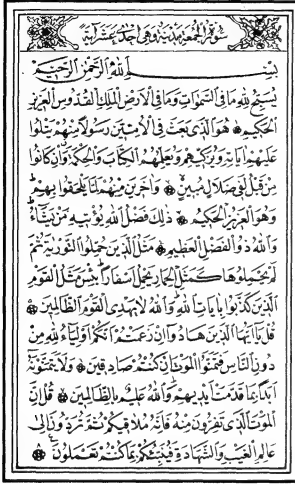 سورة الجمعة مدنية وهي احدى عشر آية
بِسْمِ اللهِ الرَّحْمٰنِ الرَّحِيمِ
يُسَبِّحُ لِلّٰهِ مَا فِي السَّمٰوَاتِ وَمَا فِي الْاَرْضِ الْمَلِكِ الْقُدُّوسِ الْعَزِيزِ
الْحَكِيمِ ۞ هُوَ الَّذِي بَعَثَ فِي الْاُمِّيِّينَ رَسُولًا مِنْهُمْ يَتْلُوا
عَلَيْهِمْ اٰيَاتِهِ وَيُزَكِّيهِمْ وَيُعَلِّمُهُمُ الْكِتَابَ وَالْحِكْمَةَ وَاِنْ كَانُوا
مِنْ قَبْلُ لَفِي ضَلَالٍ مُبِينٍ ۞ وَاٰخَرِينَ مِنْهُمْ لَمَّا يَلْحَقُوا بِهِمْ
وَهُوَ الْعَزِيزُ الْحَكِيمُ ۞ ذٰلِكَ فَضْلُ اللهِ يُؤْتِيهِ مَنْ يَشَاءُ
وَاللهُ ذُو الْفَضْلِ الْعَظِيمِ ۞ مَثَلُ الَّذِينَ حُمِّلُوا التَّوْرٰيةَ ثُمَّ
لَمْ يَحْمِلُوهَا كَمَثَلِ الْحِمَارِ يَحْمِلُ اَسْفَارًا بِئْسَ مَثَلُ الْقَوْمِ
الَّذِينَ كَذَّبُوا بِاٰيَاتِ اللهِ وَاللهُ لَا يَهْدِي الْقَوْمَ الظَّالِمِينَ ۞
قُلْ يَا اَيُّهَا الَّذِينَ هَادُوا اِنْ زَعَمْتُمْ اَنَّكُمْ اَوْلِيَاءُ لِلّٰهِ مِنْ
دُونِ النَّاسِ فَتَمَنَّوُا الْمَوْتَ اِنْ كُنْتُمْ صَادِقِينَ ۞ وَلَا يَتَمَنَّوْنَهُ
اَبَدًا بِمَا قَدَّمَتْ اَيْدِيهِمْ وَاللهُ عَلِيمٌ بِالظَّالِمِينَ ۞ قُلْ اِنَّ
الْمَوْتَ الَّذِي تَفِرُّونَ مِنْهُ فَاِنَّهُ مُلَاقِيكُمْ ثُمَّ تُرَدُّونَ اِلٰى
عَالِمِ الْغَيْبِ وَالشَّهَادَةِ فَيُنَبِّئُكُمْ بِمَا كُنْتُمْ تَعْمَلُونَ ۞